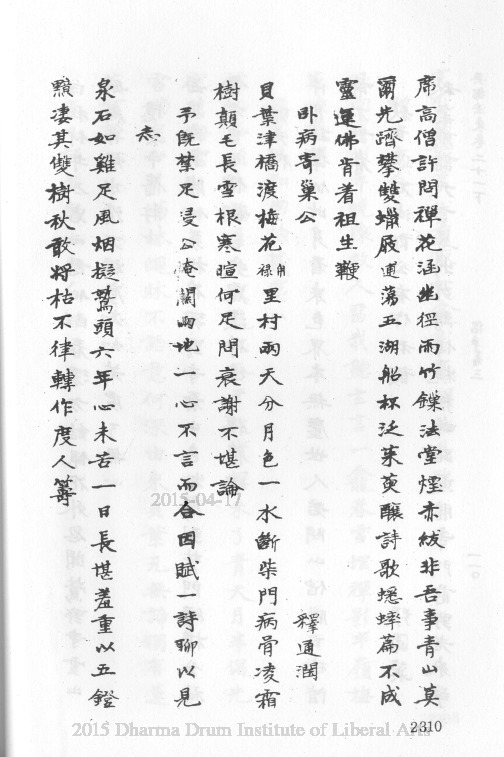 席高僧許問禪花涵幽徑雨竹鏁法堂煙赤紱非吾事青山莫
爾先躋攀雙蠟屐逋蕩五湖船杯泛茱萸釀詩歌蟋蟀篇不成
靈運佛肯着祖生鞭
卧病寄巢公　釋通潤
貝葉津橋渡梅花里村兩天分月色一水斷柴門病骨凌霜
樹顛毛長雪根寒暄何足問衰謝不堪論
予既禁足浸公淹關兩地一心不言而合因賦一詩聊以見
志
泉石如雞足風烟擬鷲頭六年心未苦一日長堪羞重以五鐙
黥凄其雙樹秋敢將枯不律轉作度人籌
2310
2015-04-17
2015 Dharma Drum Institute of Liberal Arts